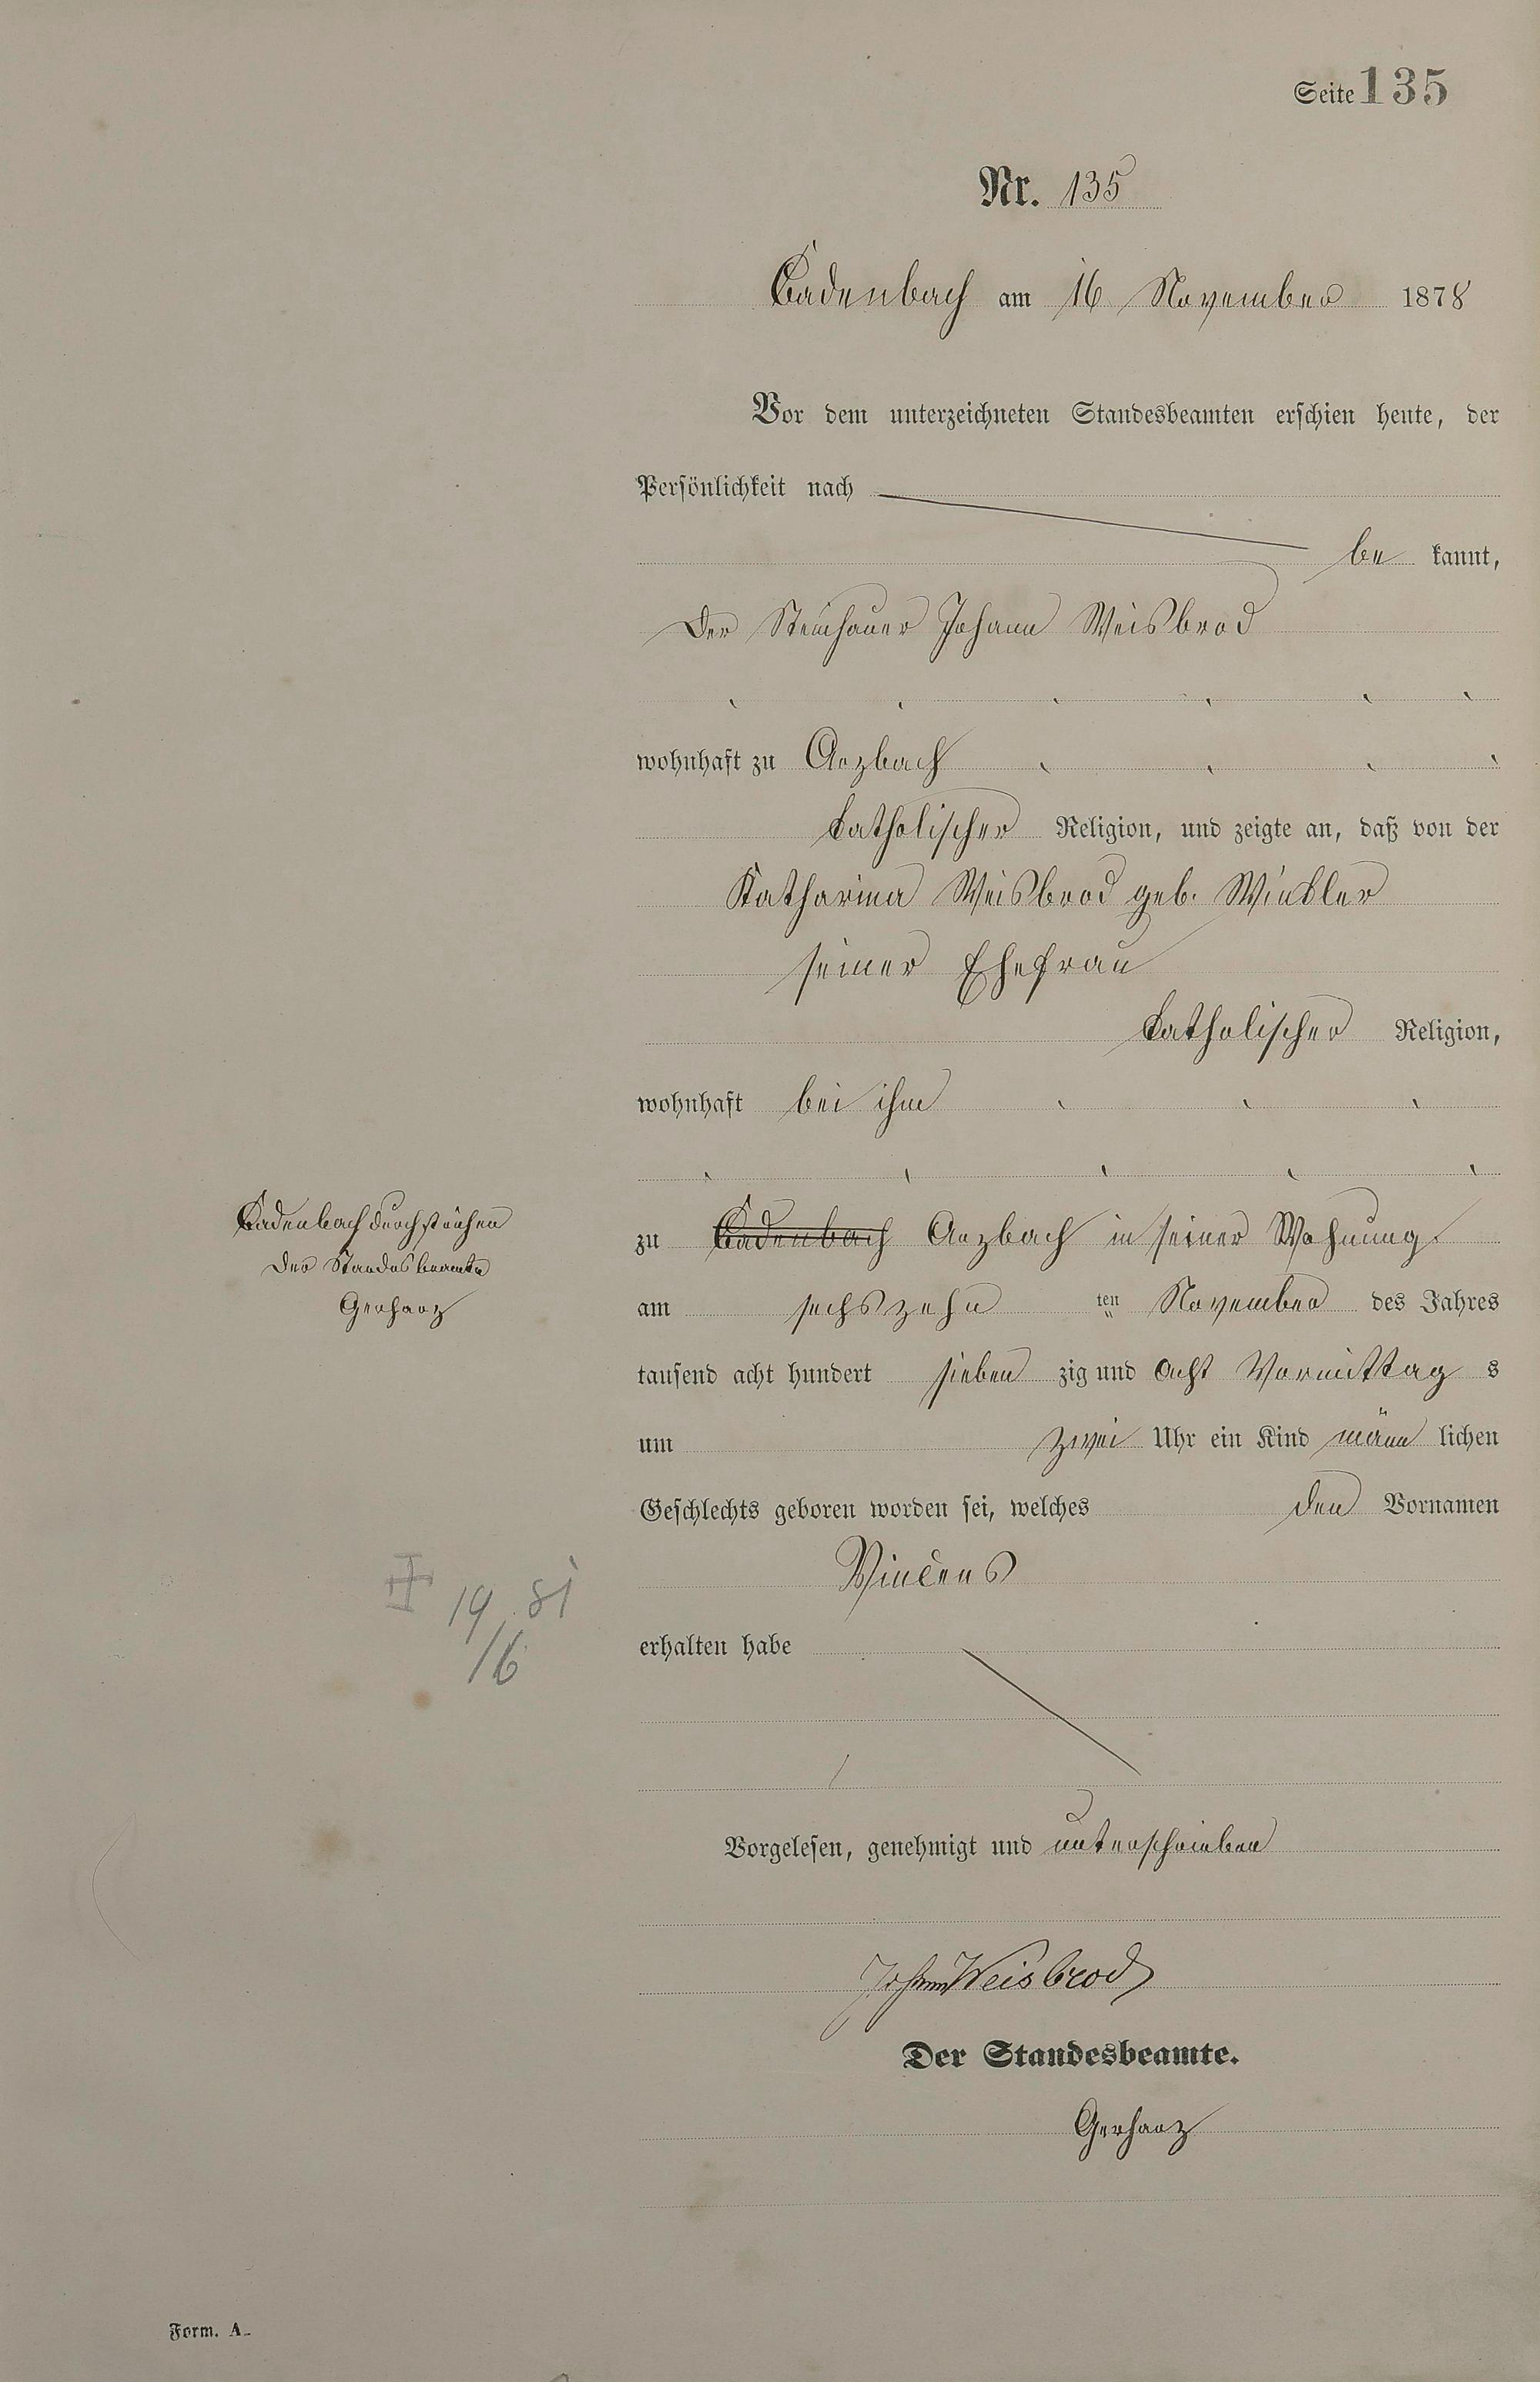 Seite 135
Nr. 135
Cadenbach am 16 November 1878
Vor dem unterzeichneten Standesbeamten erschien heute, der
Persönlichkeit nach
be kannt,
Der Steinhauer Johann Weisbrod
wohnhaft zu Arzbach
katholischer Religion, und zeigte an, daß von der
Katharina Weisbrod geb. Winkler
seiner Ehefrau
katholischer Religion,
wohnhaft bei ihm
zu Cadenbach Arzbach in seiner Wohnung
am sechszehn ten November des Jahres
tausend acht hundert sieben zig und acht Vormittag s
um zwei Uhr ein Kind männ lichen
Geschlechts geboren worden sei, welches den Vornamen
Vincens
erhalten habe
Vorgelesen, genehmigt und unterschrieben
Johann Weisbrod
Der Standesbeamte.
Gerharz
Cadenbach durchstrichen
Der Standesbeamte
Gerharz
19 81
/6
Form. A.